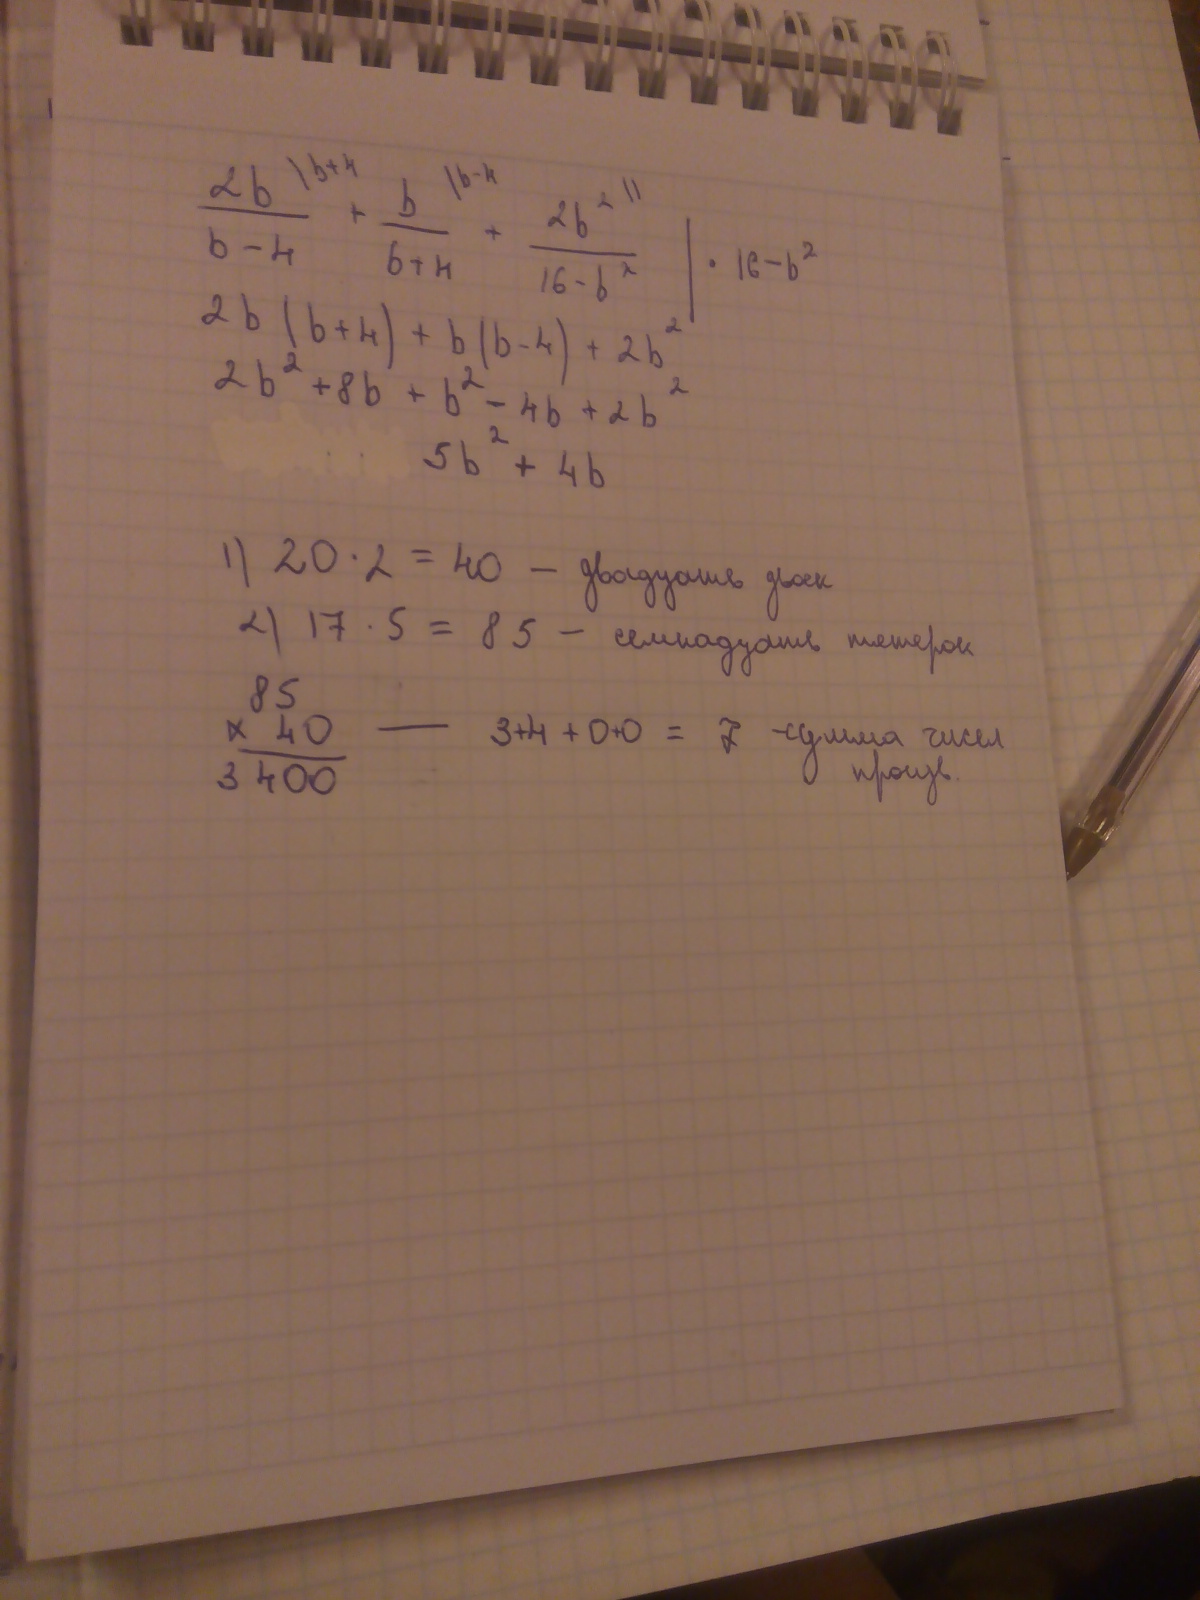 2b \b+4 / b-4 + b \b-4 / b+4 + 2b² \1 / 16-b² | · 16-b²
2b (b+4) + b(b-4) + 2b²
2b² + 8b + b² - 4b + 2b²
5b² + 4b
1) 20 · 2 = 40 - двадцать двоек
2) 17 · 5 = 85 - семнадцать пятерок
85
x 40 — 3+4+0+0 = 7 - сумма чисел
3400 произв.